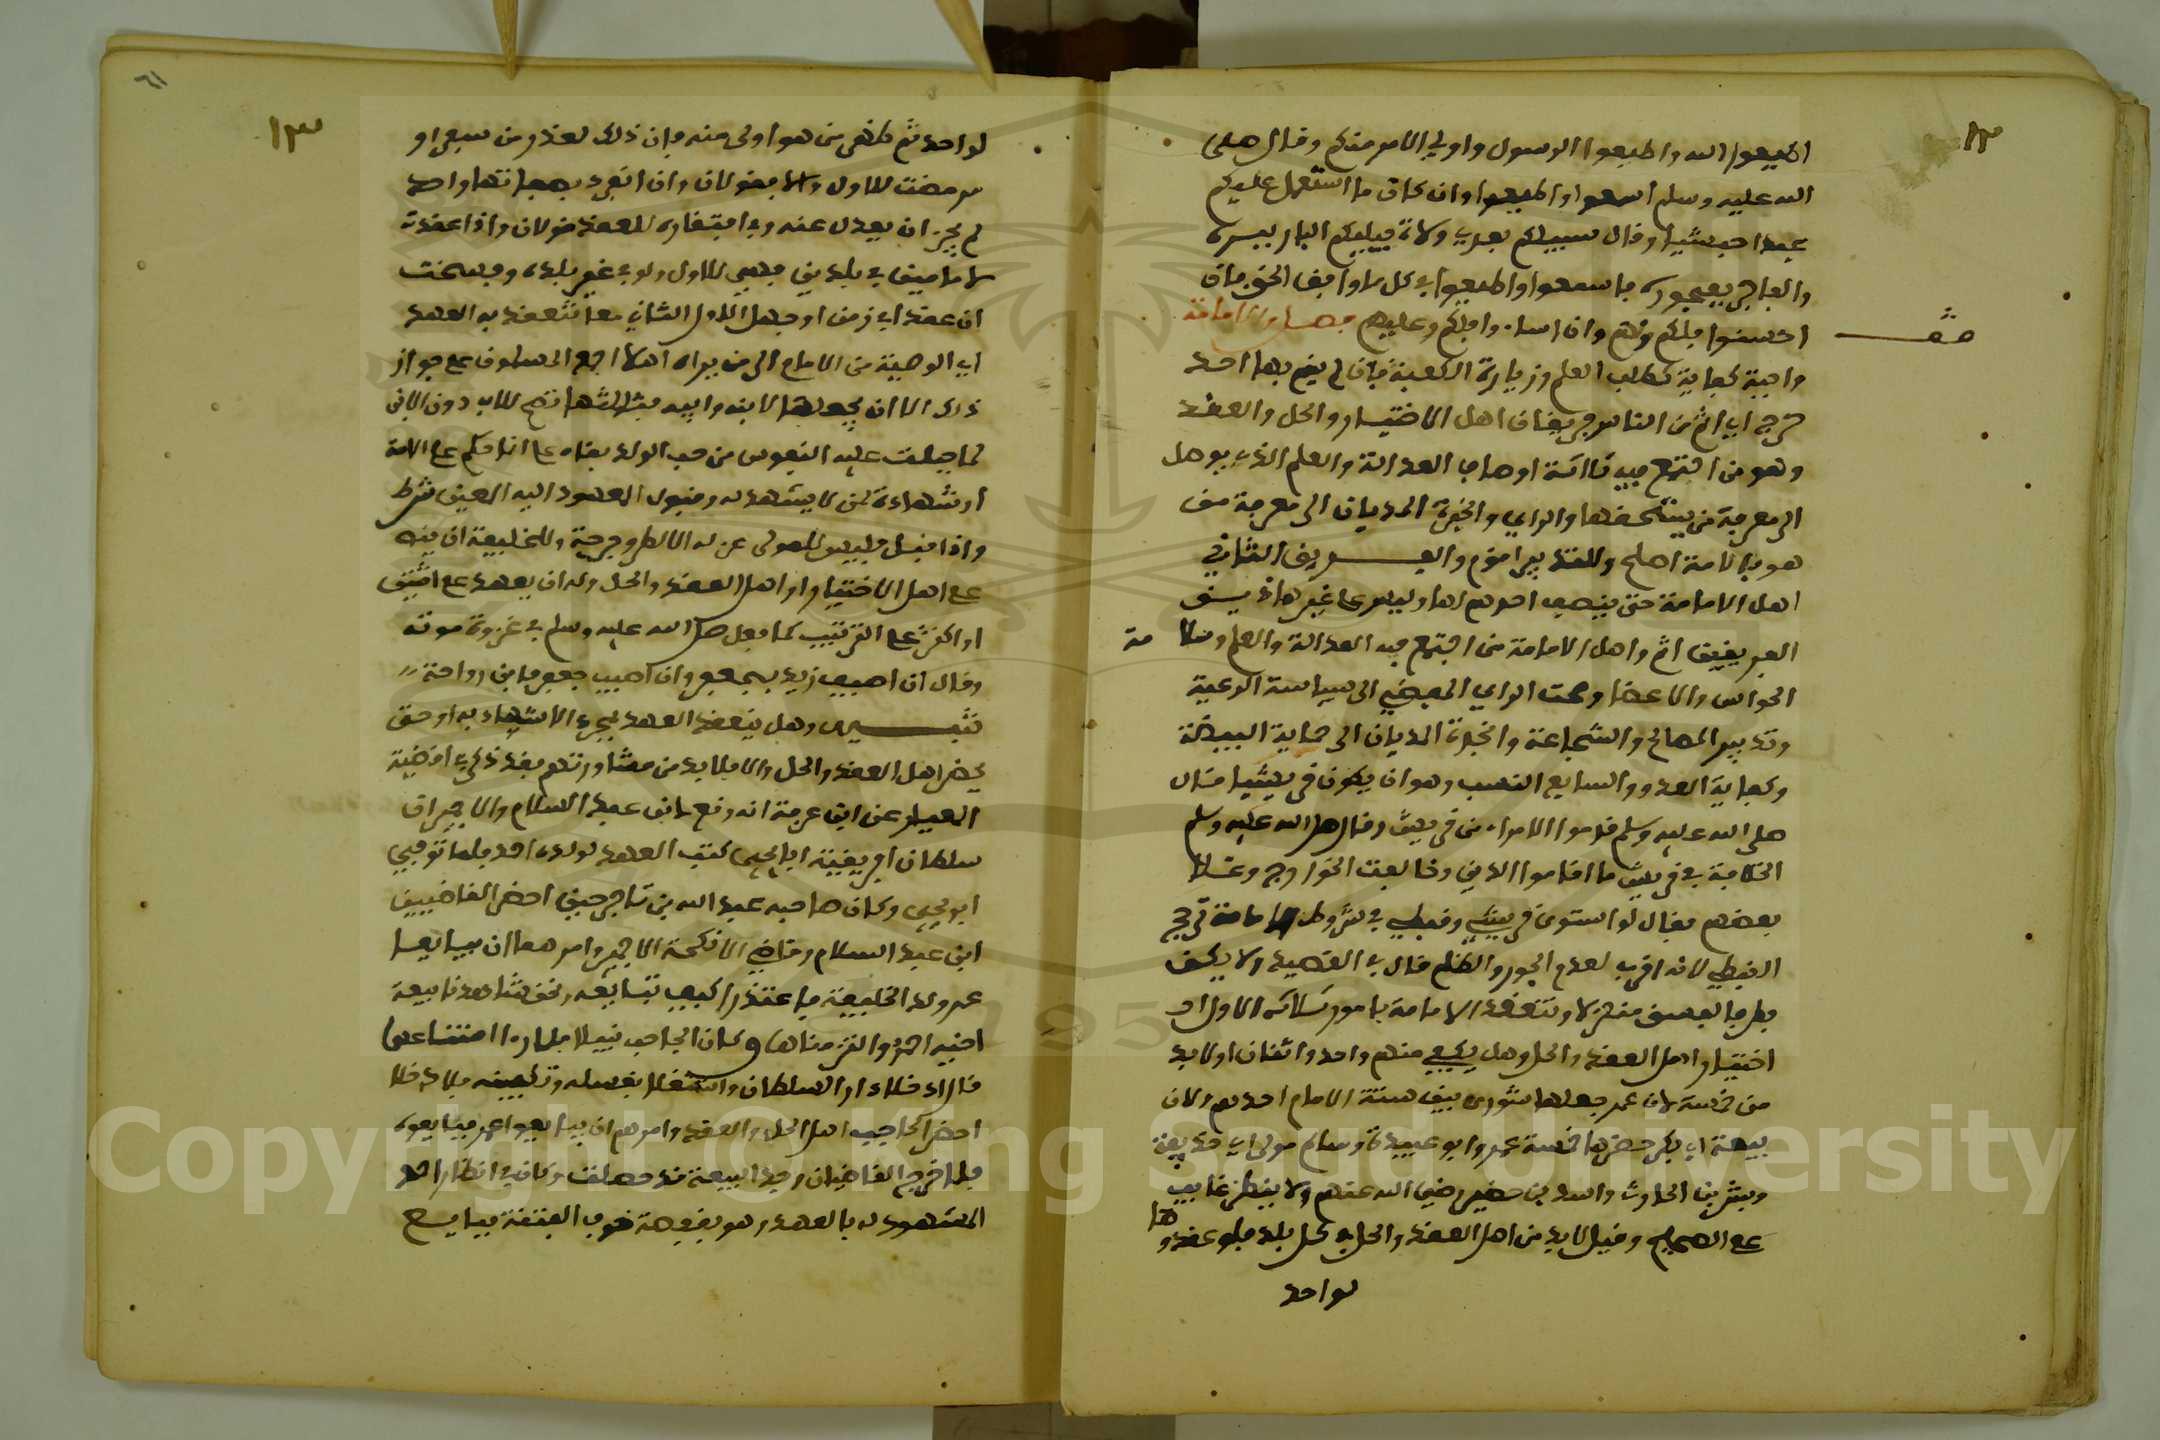 ١٢
اطيعوا الله واطيعوا الرسول واولي الامر منكم وقال صلى
الله عليه وسلم اسمعوا واطيعوا وان كان ما استعمل عليكم
عبدا حبشيا وقال سيليكم بعدي ولاة فيليكم البار ببره
والفاجر بفجوره فاسمعوا واطيعوا في كل ما وافق الحق فان
احسنوا فلكم ولهم وان اساءوا فلكم وعليهم فصل والامامة
واجبة كفاية كطلب العلم وزيارة الكعبة فان لم يقم بها احد
حرج اي اثم من الناس فريقان اهل الاختيار والحل والعقد
وهو من اجتمع فيه ثلاثة اوصاف العدالة والعلم الذي يوصل
الى معرفة من يستحقها والراي والخبرة المديان الى معرفة من
هو بالامة اصلح وللتدبير اقوم والفريق الثاني
اهل الامامة حتى ينصب احدهم لها وليس على غير هاذين
الفريقين اثم واهل الامامة من اجتمع فيه العدالة والعلم وسلامة
الحواس والاعضا وصحت الراي المفضي الى سياسة الرعية
وتدبير المصالح والشجاعة والخبرة المديان الى حماية البيضة
وكفاية العدو والسابع النسب وهو ان يكون قريشيا قال
صلى الله عليه وسلم قدموا الامراء من قريش وقال صلى الله عليه وسلم
الخلافة في قريش ما اقاموا الدين وخالفت الخوارج وغلا
بعضهم فقال لو استوى قريشي ونبطي في شروط الامامة رجح
النبطي لانه اقرب لعدم الجور والظلم قال في القصيد ولا يكن
بطرفا لفسق منعزلا وتنعقد الامامة بامور ثلاثة الاول احد
اختيار اهل العقد والحل وهل يكفي منهم واحد واثنان او لا بد
من خمسة لان عمر جعلها شورى بين ستة الامام احدهم ولان
بيعة ابي بكر حضرها خمسة عمر وابو عبيدة وسالم مولى ابي حذيفة
وبشر بن الحارث واسيد بن حضير رضي الله عنهم ولا ينتظر غايب
على الصحيح وقيل لا بد من اهل العقد والحل في كل بلد فلو عقدوها
لواحد
١٣
لواحد ثم ظهر من هو اولى منه فان ذلك لعذر من سفر او
مرض مضت للاول والا فقولان وان انفرد بصفاتها واحد
لم يجز ان يعدل عنه وفي افتقاره للعقد قولان واذا عقدت
لامامين في بلدين فهي للاول ولو في غير بلده وفسخت
ان عقدا في زمن او جهل الاول الثاني مما تنعقد به العهد
اي الوصية من الامام الى من يراه اهلا اجمع المسلمون على جواز
ذلك الا ان يجعلها لابنه وابيه فثالثها تصح للاب دون الابن
لما جبلت عليه النفوس من حب الولد بناء على انها حكم على الامة
او شهادة لمن لا يشهد له وقبول المعهود اليه المعين شرط
واذا قبل فليس للمولى عزله الا لطرو جرحة وللخليفة ان ينص
على اهل الاختيار او اهل العقد والحل وله ان يعهد على اثنين
او اكثر على الترتيب كما فعل صلى الله عليه وسلم في غزوة موتة
وقال ان اصيب زيد فجعفر وان اصيب جعفر فابن رواحة
تنبيه وهل ينعقد العهد بمجرد الاشهاد به او حتى
يحضر اهل العقد والحل والا فلا بد من مشاورتهم فقد ذكر في اقضية
المعيار عن ابن عرفة انه وقع لابن عبد السلام والاجمي ان
سلطان افريقية ابا يحيى كتب العهد لولده احمد فلما توفي
ابو يحيى وكان صاحبه عبد الله بن تافرجين احضر القاضيين
ابن عبد السلام وقاضي الانكحة الاجمي وامرهما ان يبايعا
عمر ولد الخليفة فاعتذرا كيف نبايعه ونحن شاهدنا بيعة
اخيه احمد والتزمناها وكان الحاجب نبيلا فلما راى امتناعهما
قال ادخلا دار السلطان واشتغلا بغسله وتكفينه فلما دخلا
احضر الحاجب اهل الحل والعقد وامرهم ان يبايعوا عمر فبايعوه
فلما خرج القاضيان وجدا البيعة قد حصلت وكان في انتظار احمد
المشهود له بالعهد وهو بقفصة خوف الفتنة فبايع